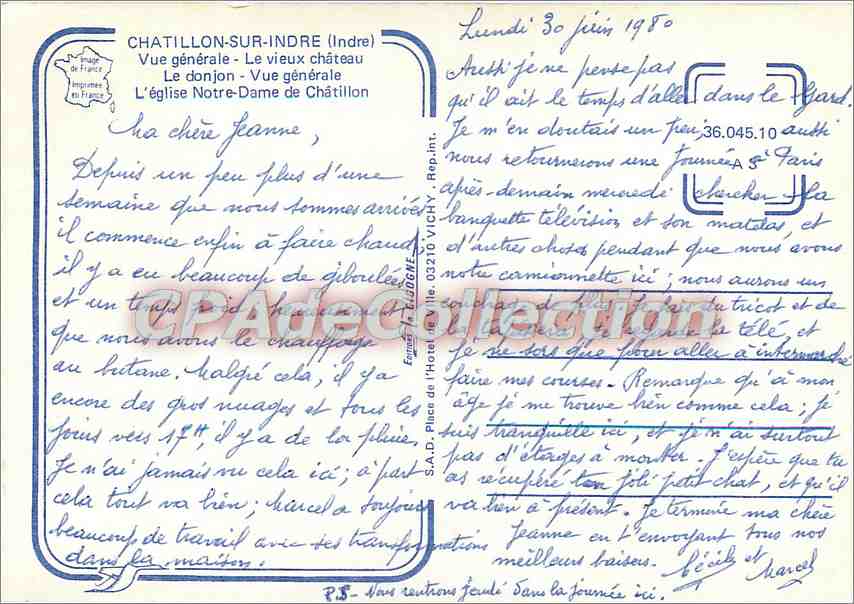 CHATILLON-SUR-INDRE (Indre)
Vue générale - Le vieux château
Le donjon - Vue générale
L'église Notre-Dame de Châtillon
Image
de France
Imprimée
en France
Ma chère Jeanne,
Depuis un peu plus d'une
semaine que nous sommes arrivés
il commence enfin à faire chaud,
il y a eu beaucoup de giboulées
et un temps froid, heureusement
que nous avons le chauffage
au butane. Malgré cela, il y a
encore des gros nuages et tous les
jours vers 17H, il y a de la pluie.
Je n'ai jamais vu cela ici ; à part
cela tout va bien ; Marcel a toujours
beaucoup de travail avec ses transformations
dans la maison.
S.A.D. Place de l'Hôtel de Ville. 03210 VICHY. Rep.int.
Editions
CIGOGNE
Lundi 30 juin 1980
Aussi je ne pense pas
qu'il ait le temps d'aller dans le Gard.
Je m'en doutais un peu, aussi
36.045.10
nous retournerons une journée à Paris
A S
après-demain mercredi chercher la
banquette télévision et son matelas, et
d'autres choses pendant que nous avons
notre camionnette ici ; nous aurons un
couchage de plus. Je fais du tricot et de
la je regarde la télé, et
je ne sors que pour aller à intermarché
faire mes courses. Remarque qu'à mon
âge je me trouve bien comme cela ; je
suis tranquille ici, et je n'ai surtout
pas d'étages à monter. J'espère que tu
as récupéré ton joli petit chat, et qu'il
va bien à présent. Je termine ma chère
Jeanne en t'envoyant tous nos
meilleurs baisers. Cécile et
Marcel
P.S - Nous rentrons jeudi dans la journée ici.
CPAdeCollection